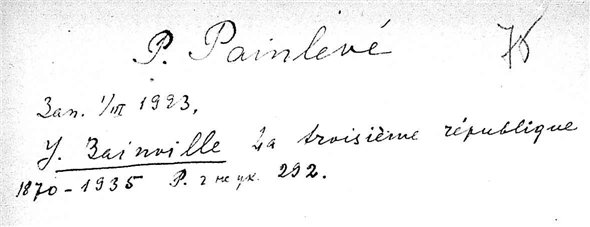 P. Painlevé 76
Зап. 1/III 1923.
J. Bainville La troisième république
1870-1935 P. г не ук. 292.